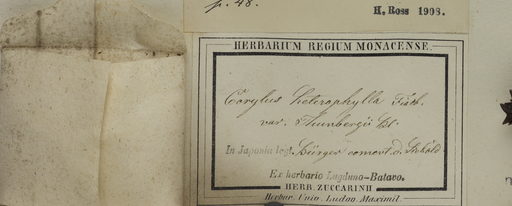 p. 48.
H. Ross 1908.
HERBARIUM REGIUM MONACENSE.
Corylus heterophylla Fisch.
var. Thunbergii Bl.
In Japonia legit Bürger comm. d. Siebold
Ex herbario Lugduno-Batavo.
HERB. ZUCCARINII
Herbar. Univ. Ludov. Maximil.